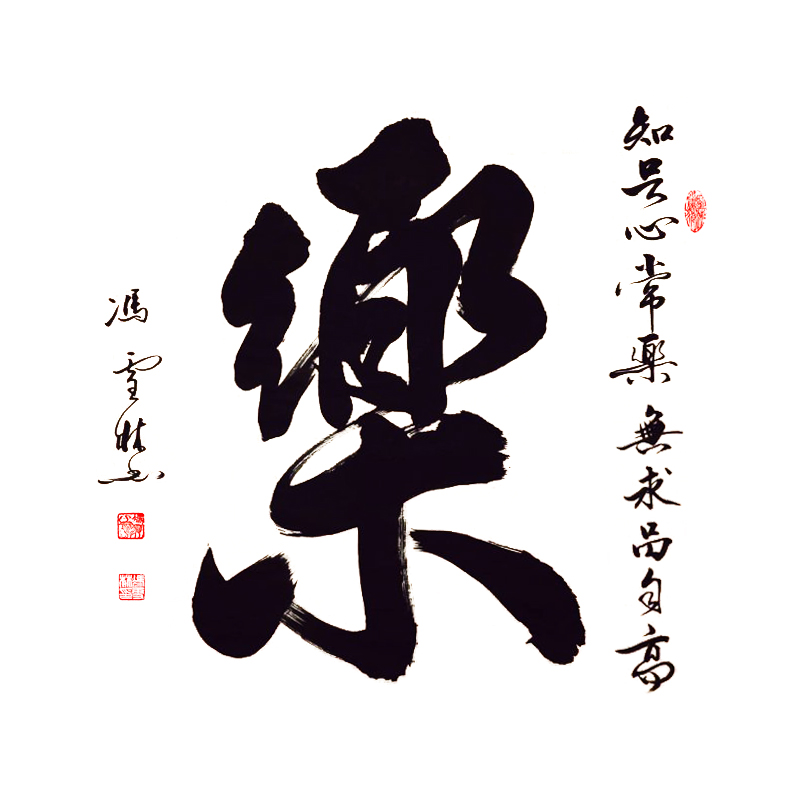 知足心常樂無求品自高
樂
馮雪林書